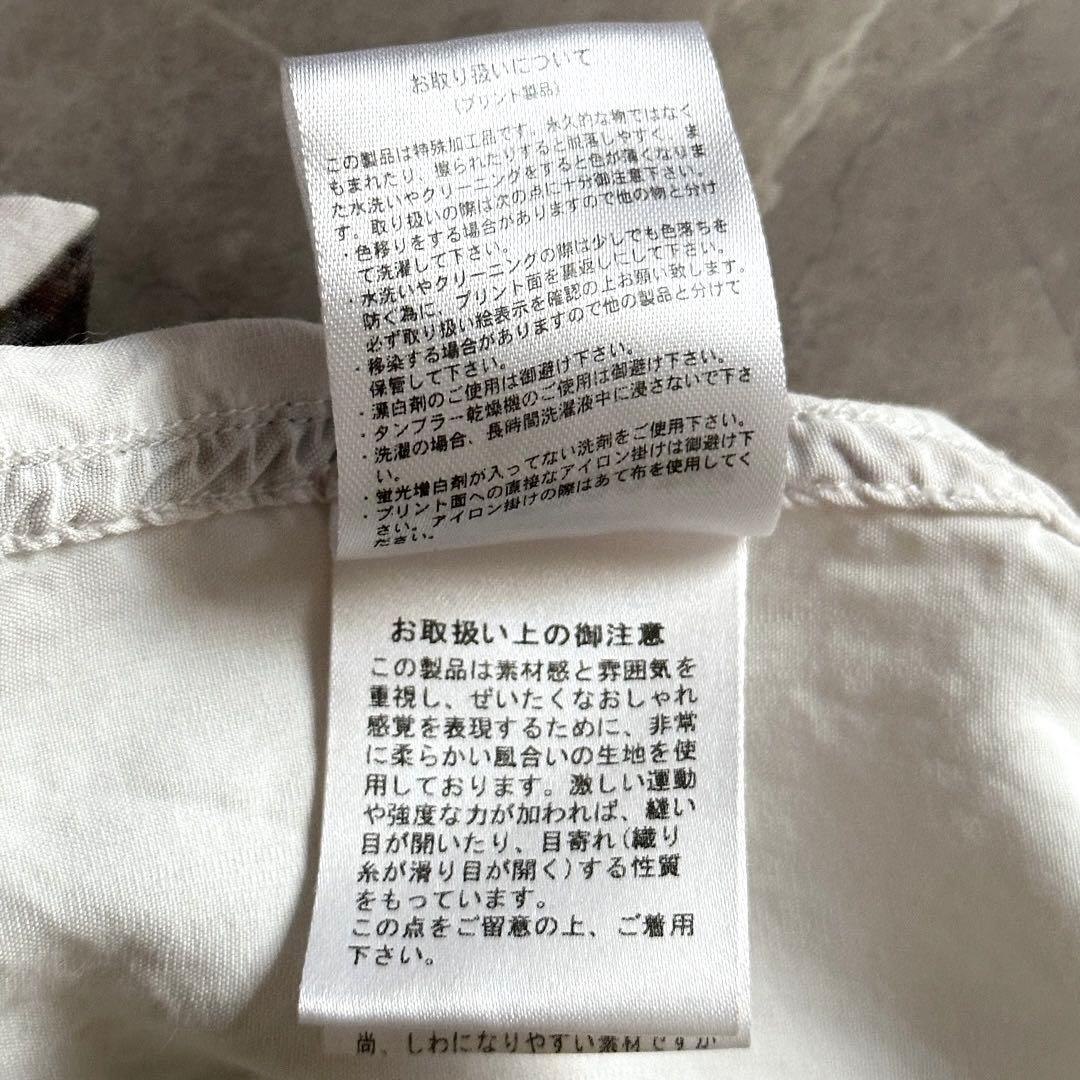 お取り扱いについて
(プリント製品)
この製品は特殊加工品です。永久的な物ではなく
もまれたり、擦られたりすると脱落しやすく、ま
た水洗いやクリーニングをすると色が薄くなりま
す。取り扱いの際は次の点に十分御注意下さい。
・色移りをする場合がありますので他の物と分け
て洗濯して下さい。
・水洗いやクリーニングの際は少しでも色落ちを
防ぐ為に、プリント面を裏返しにして下さい。
必ず取り扱い絵表示を確認の上お願い致します。
・移染する場合がありますので他の製品と分けて
保管して下さい。
・漂白剤のご使用は御避け下さい。
・タンブラー乾燥機のご使用は御避け下さい。
・洗濯の場合、長時間洗濯液中に浸さないで下さ
い。
・蛍光増白剤が入ってない洗剤をご使用下さい。
・プリント面への直接なアイロン掛けは御避け下
さい。アイロン掛けの際はあて布を使用してく
ださい。
お取扱い上の御注意
この製品は素材感と雰囲気を
重視し、ぜいたくなおしゃれ
感覚を表現するために、非常
に柔らかい風合いの生地を使
用しております。激しい運動
や強度な力が加われば、縫い
目が開いたり、目寄れ(織り
糸が滑り目が開く)する性質
をもっています。
この点をご留意の上、ご着用
下さい。
尚、しわになりやすい素材ですが